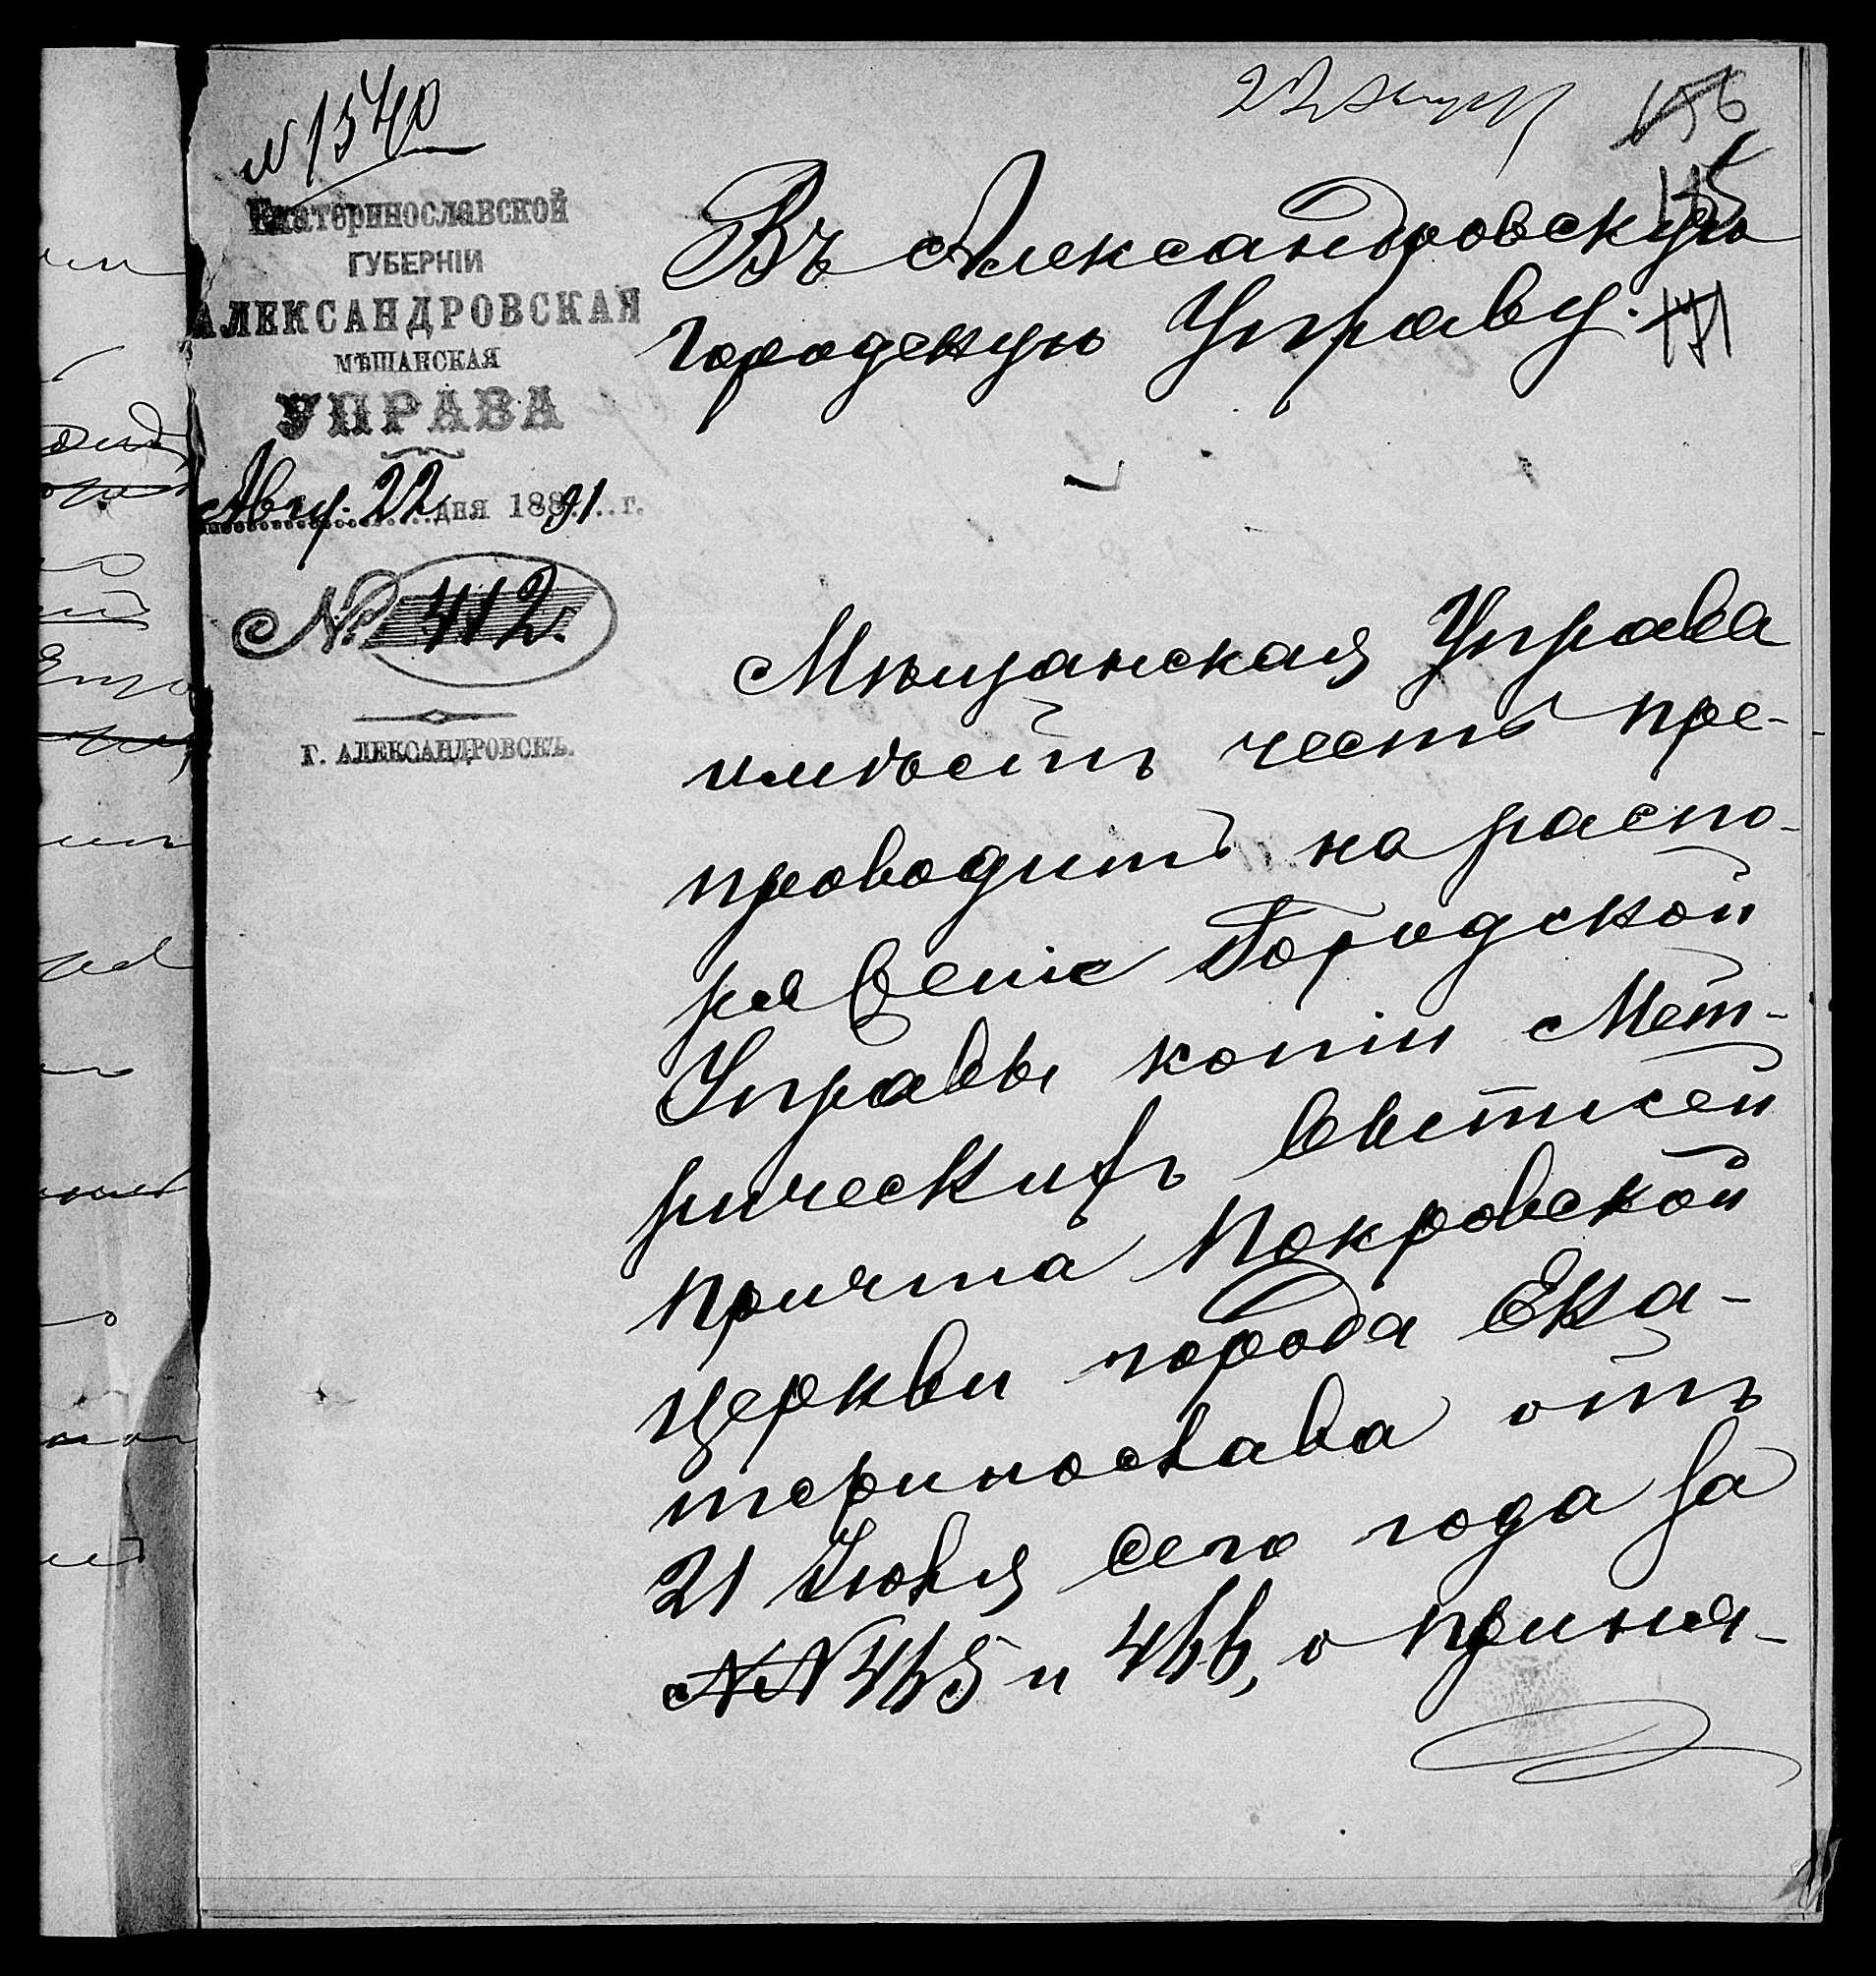 № 1540
22 Август
156
155
171
Екатеринославской
ГУБЕРНІИ
АЛЕКСАНДРОВСКАЯ
МѢЩАНСКАЯ
УПРАВА
Авгу. 22 дня 1891 г.
№ 412.
Г. АЛЕКСАНДРОВСКЪ.
Въ Александровскую
Городскую Управу.
Мѣщанская Управа
имѣетъ честь пре-
проводить на распо-
ряженіе Городской
Управы копіи Мет-
рическихъ выписей
причта Покровской
церкви города Ека-
теринослава отъ
21 Іюля сего года за
№№ 465 и 466, о приня-